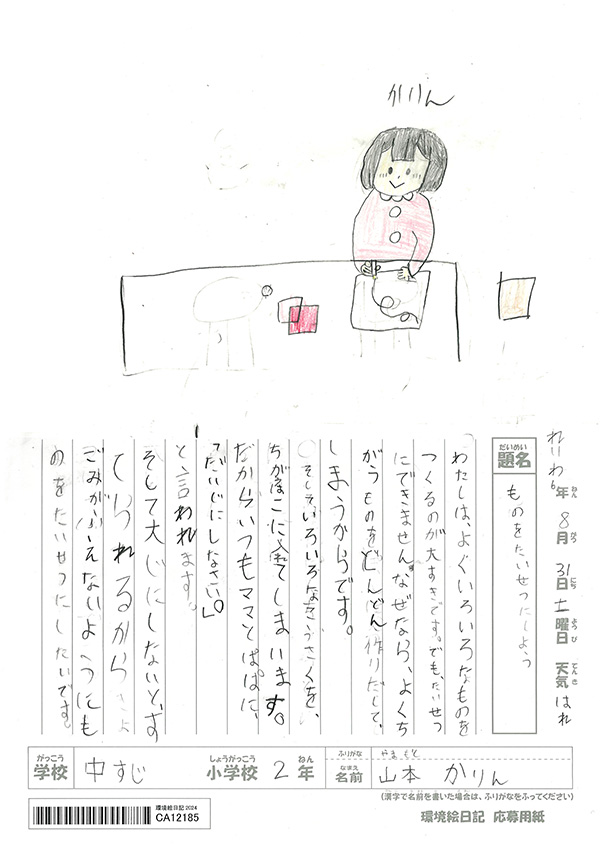 かりん
れいわ6年 8月 31日 土曜日 天気 はれ
ねん がつ にち ようび てんき
だいめい
題名
ものをたいせつにしよう
わたしは、よくいろいろなものを
つくるのが大すきです。でも、たいせつ
にできません。なぜなら、よくち
がうものをどんどん作りだして、
しまうからです。
そしていろいろな
ちがはこに入れてしまいます。
だからいつもママとぱぱに、
「だいじにしなさい。」
と言われます。
そして大じにしないと、す
てられるから
ごみが、ふえないようにも
のをたいせつにしたいです。
がっこう
学校
中すじ
しょうがっこう
小学校
2
ねん
年
ふりがな
やま もと
なまえ
名前
山本 かりん
(漢字で名前を書いた場合は、ふりがなをふってください)
環境絵日記2024
CA12185
環境絵日記 応募用紙